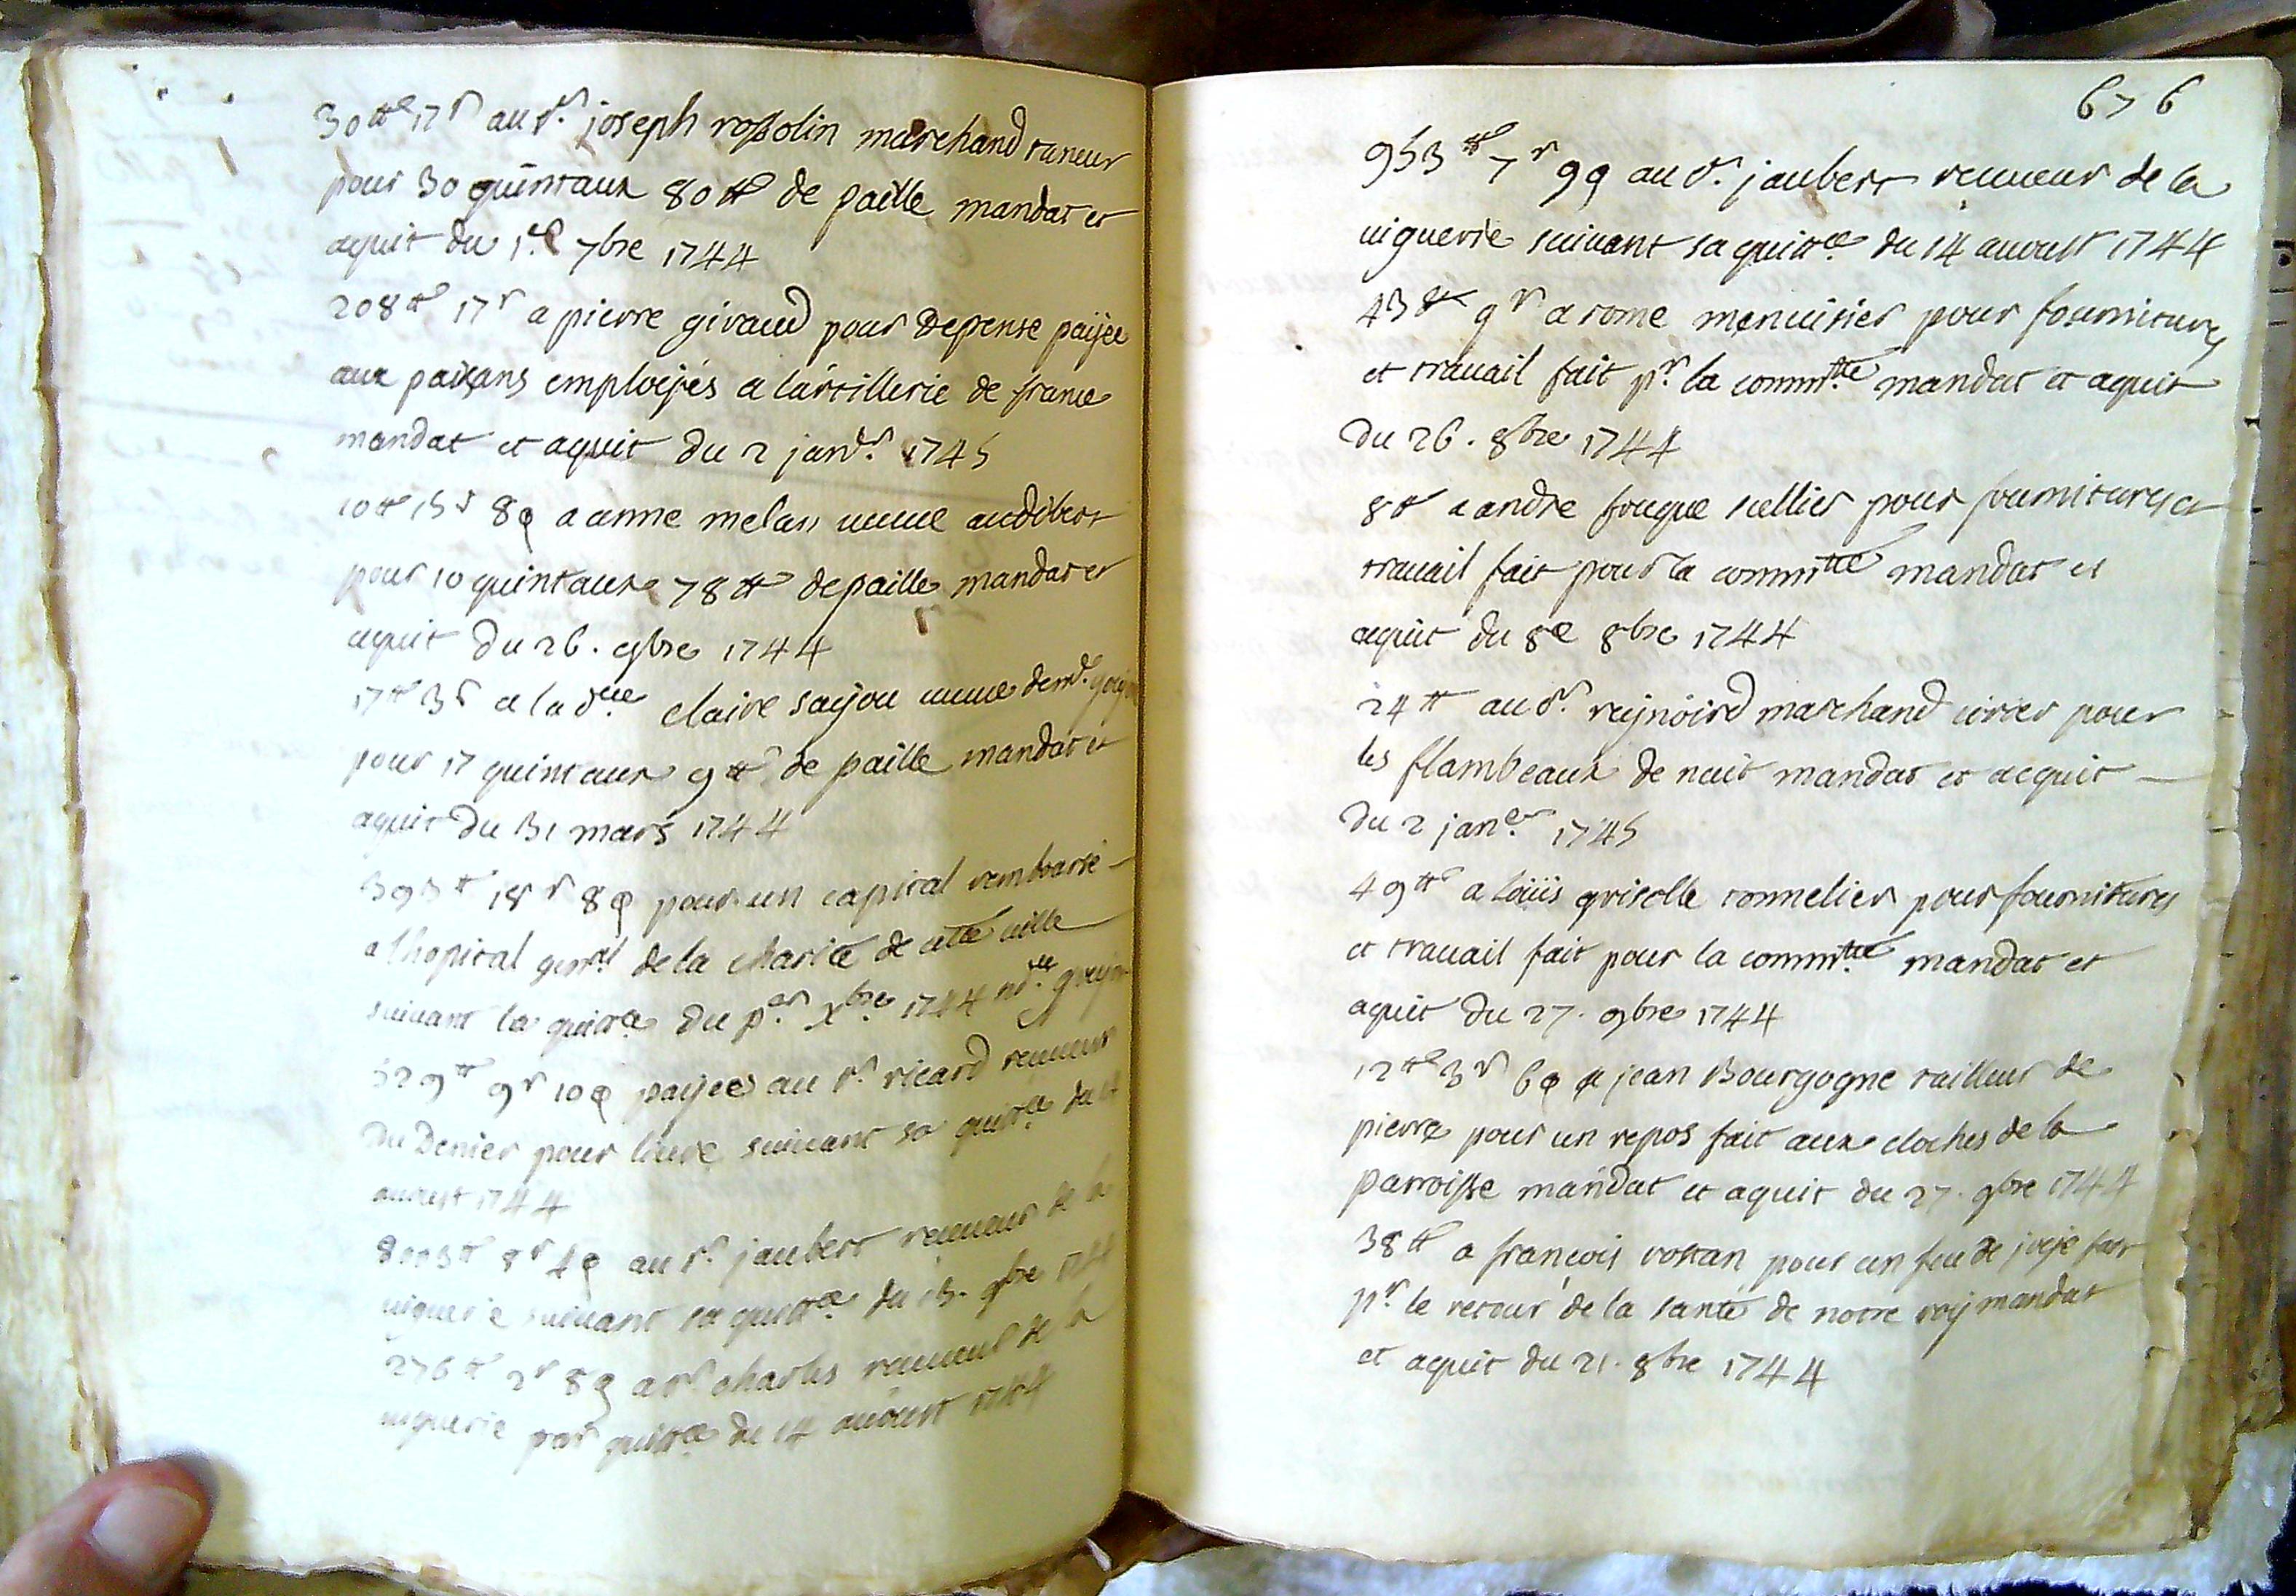 30tt 17s au sr. joseph rossolin marchand taneur
pour 30 quintaux 80tt de paille mandat et
aquit du 1er 7bre 1744
208tt 17s a pierre giraud pour depense paÿée
aux païsans emploÿés a lartillerie de france
mandat et aquit du 2 janvr. 1745
10tt 15s 8d a anne melan veuve audibert
pour 10 quintaux 78tt de paille mandat et
aquit du 26. 9bre 1744
17tt 3s a la dlle claire saÿou veuve de md.
pour 17 quintaux 9tt de paille mandat et
aquit du 31 mars 1744
393tt 18s 8d pour un capital remboursé
a lhopital genral de la charité de cette ville
suivant la quittce du per xbre 1744 nre.
529tt 9s 10d paÿées au sr. ricard receveur
du denier pour livre suivant sa quittce du 14
aoust 1744
8003tt 8s 4d au sr. jaubert receveur de la
viguerie suivant sa quittce du 13. 9bre 1744
276tt 2s 8d a sr charles receveur de la
viguerie par quittce du 14 avoust 1744
676
953tt 7s 9d au sr. jaubert receveur de la
viguerie suivant sa quittce du 14 avoust 1744
43tt 9s a rome menuisier pour fournitures
et travail fait pr. la commtté mandat et aquit
du 26. 8bre 1744
8tt a andre fouque sellier pour fournitures et
travail fait pour la commtté mandat et
aquit du 8e 8bre 1744
24tt au sr. reÿnoird marchand cirier pour
les flambeaux de nuit mandat et acquit
du 2 janer. 1745
49tt a loüis grisolle tonnelier pour fournitures
et travail fait pour la commtté mandat et
aquit du 27. 9bre 1744
12tt 3s 6d a jean Bourgogne tailleur de
pierre pour un repos fait aux cloches de la
parroisse mandat et aquit du 27. 9bre 1744
38tt a francois rostan pour un feu de joÿe fait
pr. le retour de la santé de notre roÿ mandat
et aquit du 21. 8bre 1744